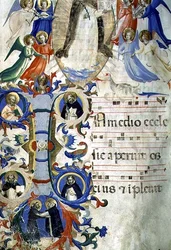 In medio eccle
sie aperuit os
eius ⁊ īpleuit